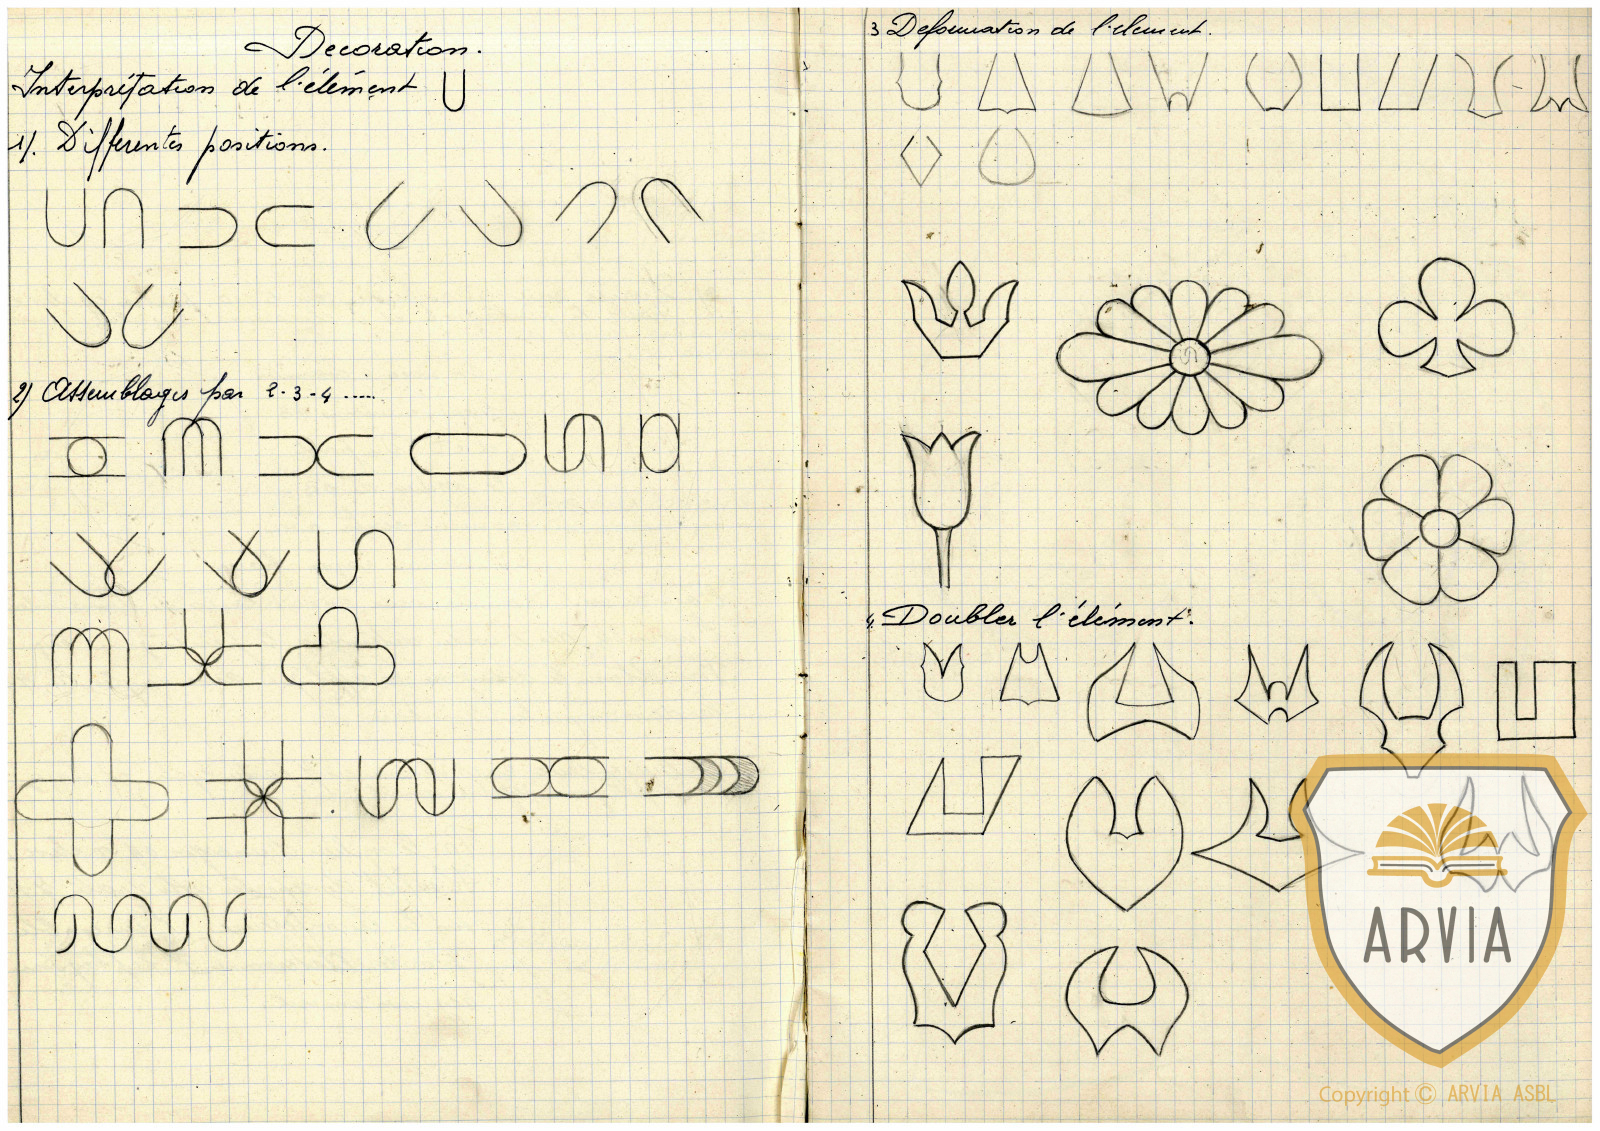 Decoration.
Interprétation de l'élément U
1). Differentes positions.
2) Assemblages par 2-3-4 .....
3 Deformation de l'element.
4. Doubler l'élément.
ARVIA
Copyright © ARVIA ASBL